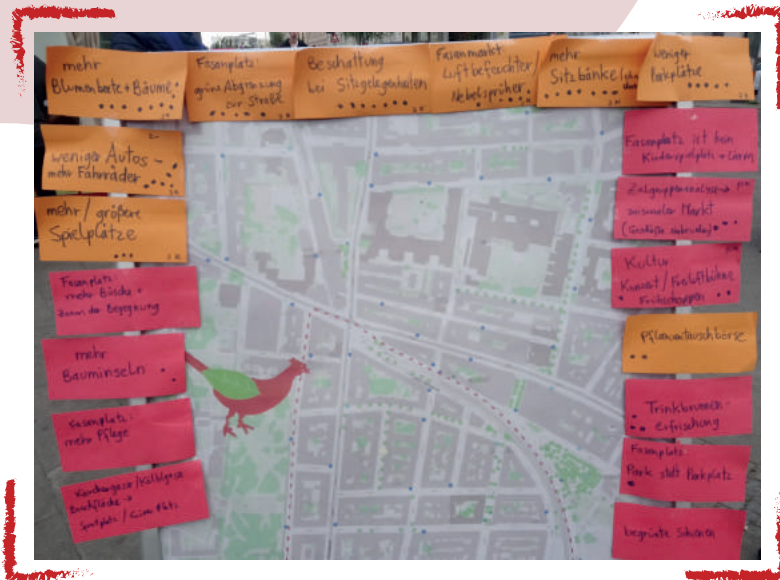 mehr
Blumenbeete + Bäume
Fasanplatz:
grüne Abgrenzung
zur Straße
Beschattung
bei Sitzgelegenheiten
Fasanmarkt
Luftbefeuchter
Nebelsprüher
mehr
Sitzbänke
weniger
Parkplätze
weniger Autos -
mehr Fahrräder
mehr / größere
Spielplätze
Fasanplatz:
mehr Büsche +
der Begegnung
mehr
Bauminseln
Fasanplatz:
mehr Pflege
Brachfläche →
Fasanplatz ist kein
Kinderspielplatz → Lärm
Markt
Kultur
Konzert / Freiluftbühne
Frühschoppen
Pflanzentauschbörse
Trinkbrunnen -
erfrischung
Fasanplatz:
Park statt Parkplatz
begrünte Schienen